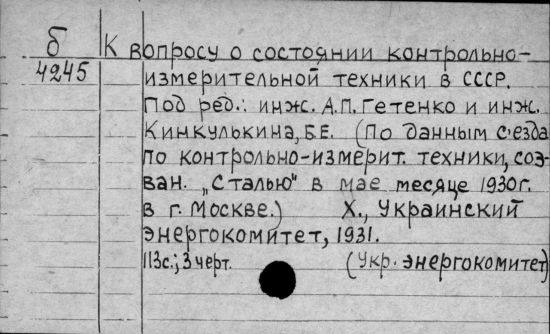 б
4245
К вопросу о состоянии контрольно-
измерительной техники в СССР.
Под ред.: инж. А.П. Гетенко и инж.
Кинкулькина, Б.Е. (По данным с'езда
по контрольно-измерит. техники, соз-
ван. „Сталью" в мае месяце 1930г.
в г. Москве.) Х., Украинский
энергокомитет, 1931.
113с.; 3 черт. (Укр. энергокомитет)